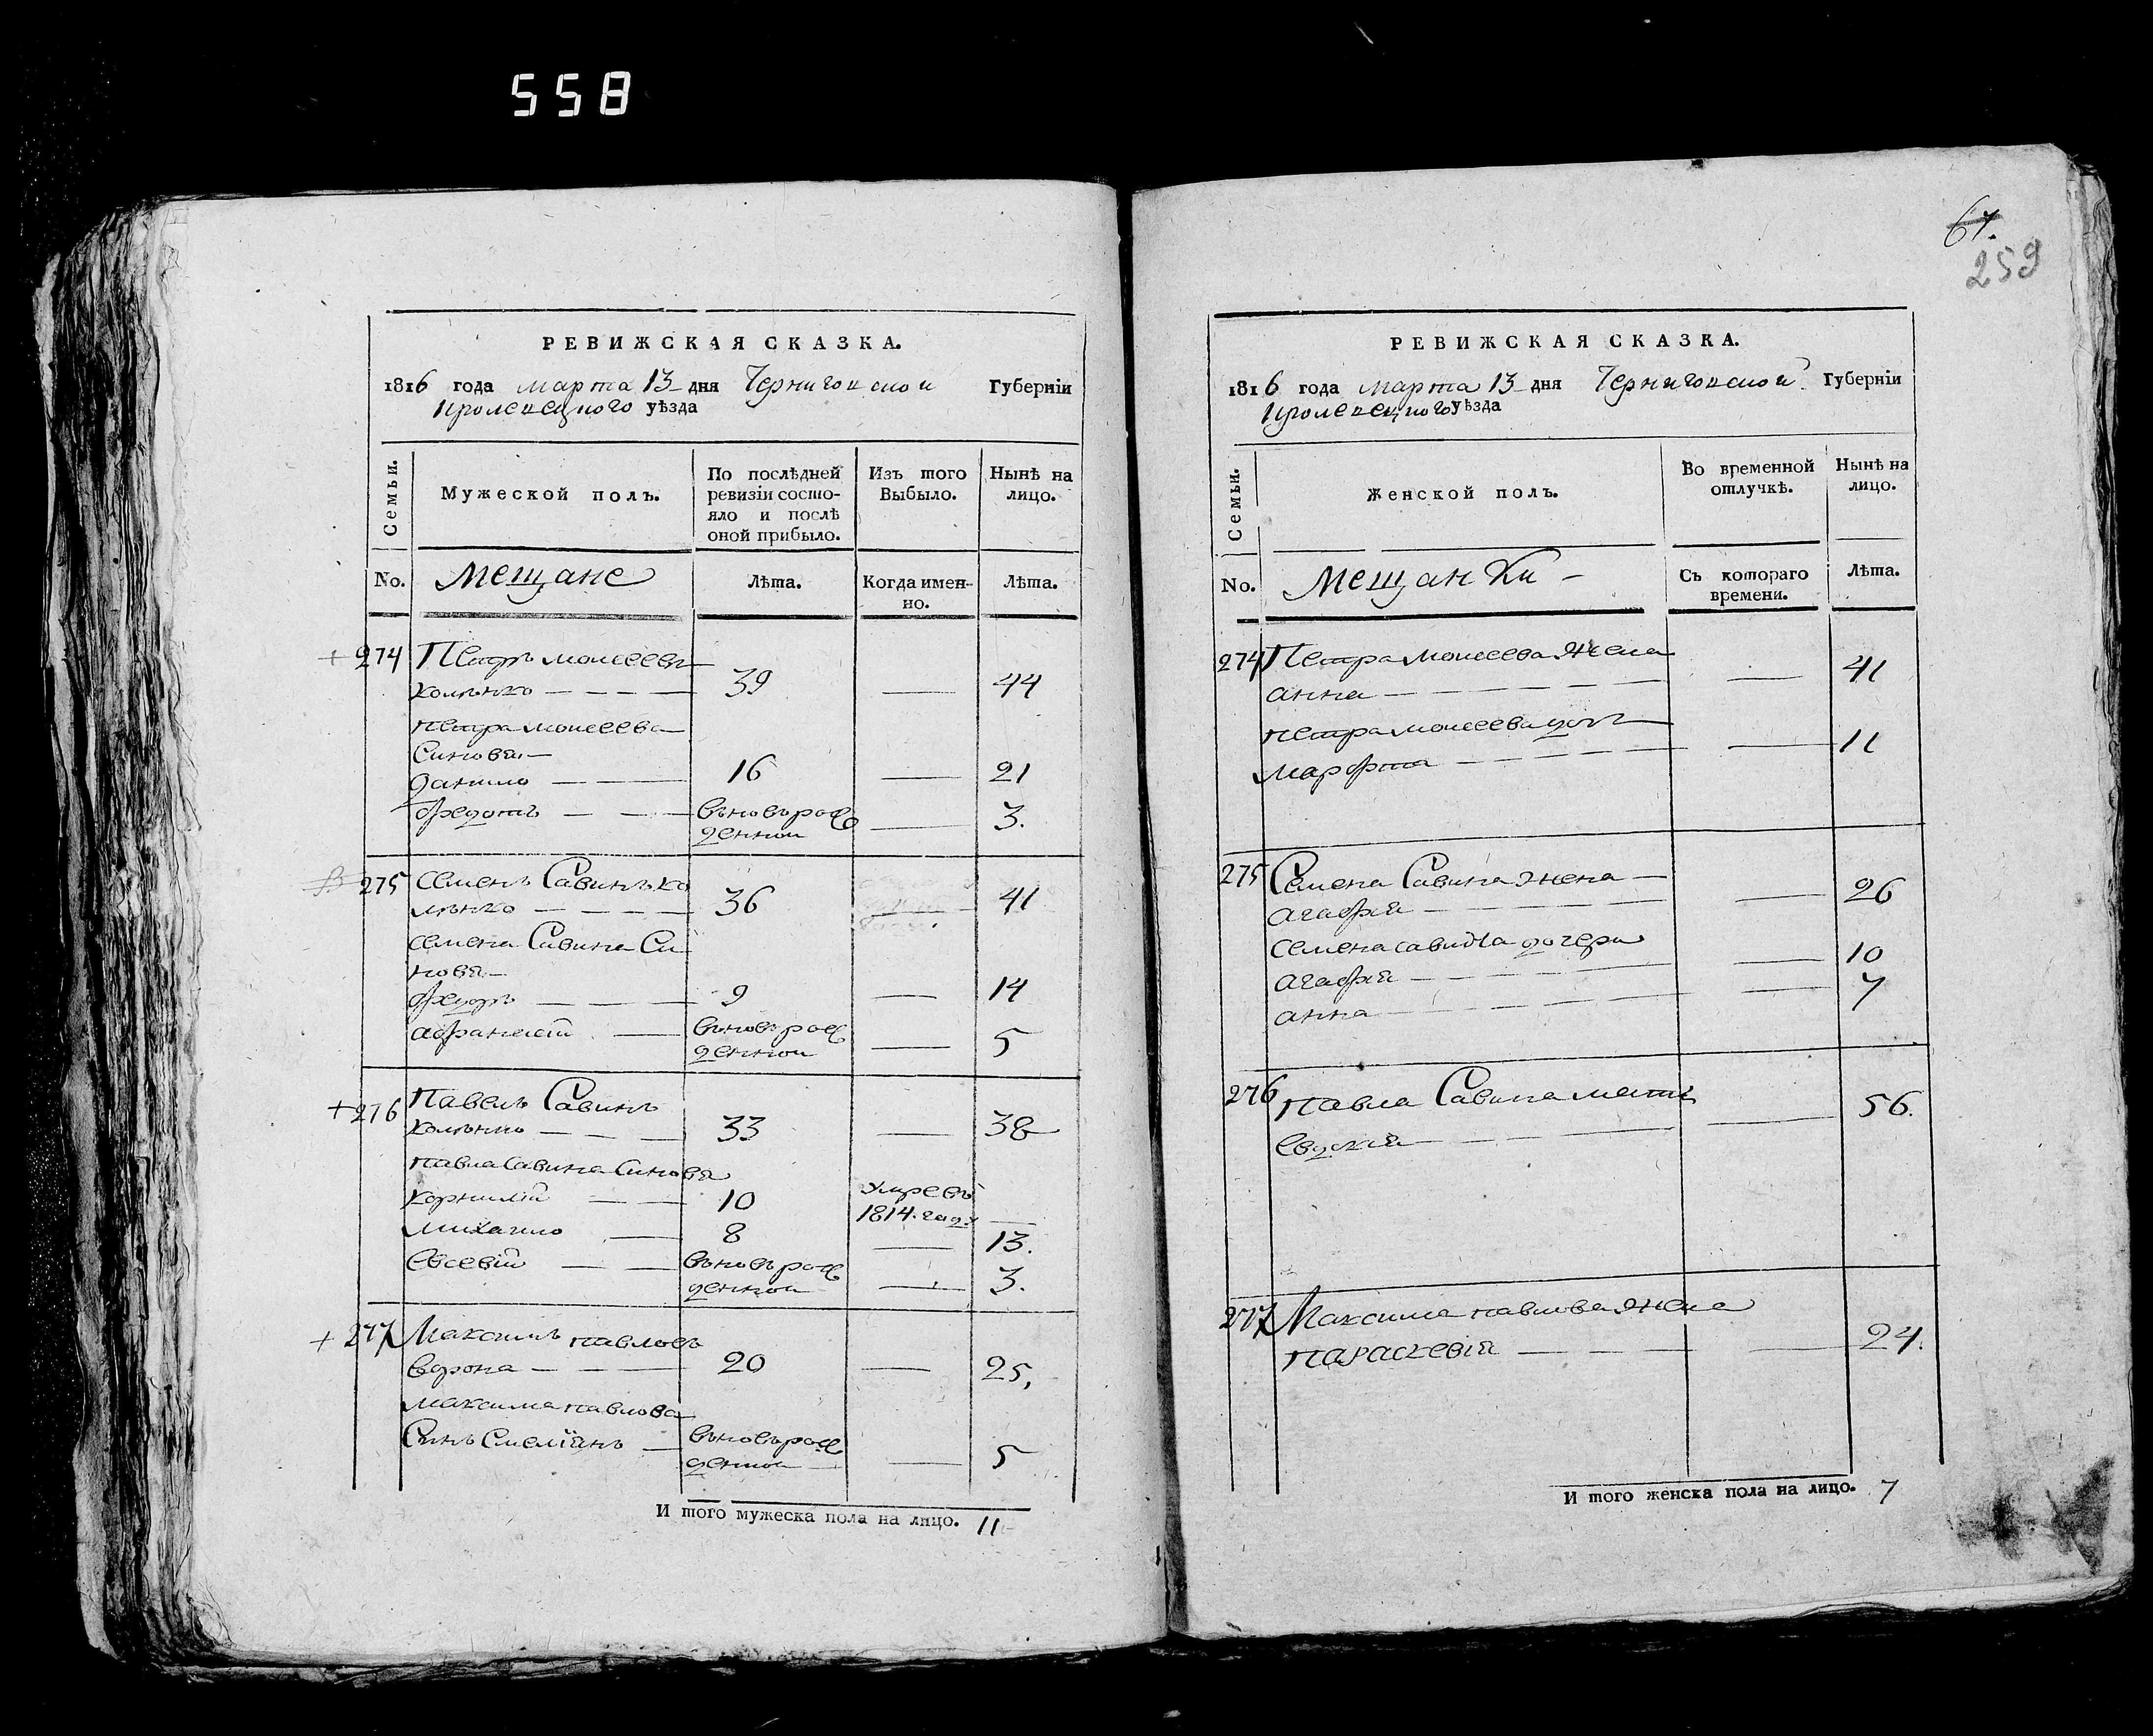 558
67.
259
РЕВИЖСКАЯ СКАЗКА.
1816 года марта 13 дня Черниговской Губерніи
Кролевецкого уѣзда
Семьи.
Мужеской полъ.
По послѣдней ревизіи состо-
яло и послѣ
оной прибыло.
Изъ того
Выбыло.
Нынѣ на
лицо.
No. Мещане Лѣта. Когда имен-
но. Лѣта.
274 Петръ моисеевъ
39 44
петра моисеева
Синовя
данило 16 21
федотъ вновърож
денной 3.
275 семенъ Савинъ ко
36 41
семена Савина Си
новя
федоръ 9 14
афанасій вновърож
денной 5
276 Павелъ Савинъ
33 38
павла Савина Синовя
корнилій 10 умре въ
1814. году
михаило 8 13.
Евсевій вновърож
денной 3.
277 Максимъ павловъ
ворона 20 25,
максима павлова
Синъ Смеліянъ вновърож
денной 5
И того мужеска пола на лицо. 11
РЕВИЖСКАЯ СКАЗКА.
1816 года марта 13 дня Черниговской Губерніи
Кролевецкого уѣзда
Семьи.
Женской полъ.
Во временной
отлучкѣ.
Нынѣ на
лицо.
No. Мещанки Съ котораго
времени. Лѣта.
274 Петра моисеева жена
анна 41
петра моисеева дочь
марфа 11
275 Семена Савина жена
агафія 26
семена савина дочери
агафія 10
анна 7
276 павла Савина мать
Евдокія 56.
277 Максима павлова жена
параскевія 24.
И того женска пола на лицо. 7